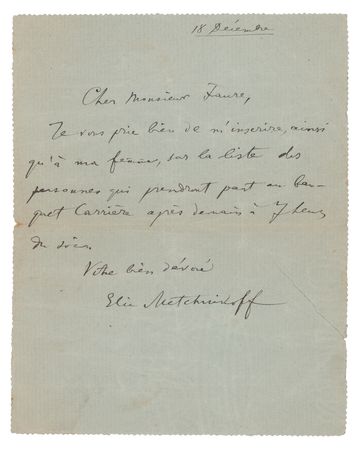 18 Décembre
Cher Monsieur Faure,
Je vous prie bien de m'inscrire, ainsi
qu'à ma femme, sur la liste des
personnes qui prendront part au ban-
quet Carrière après demain à 7 heures
du soir.
Votre bien dévoué
Elie Metchnikoff